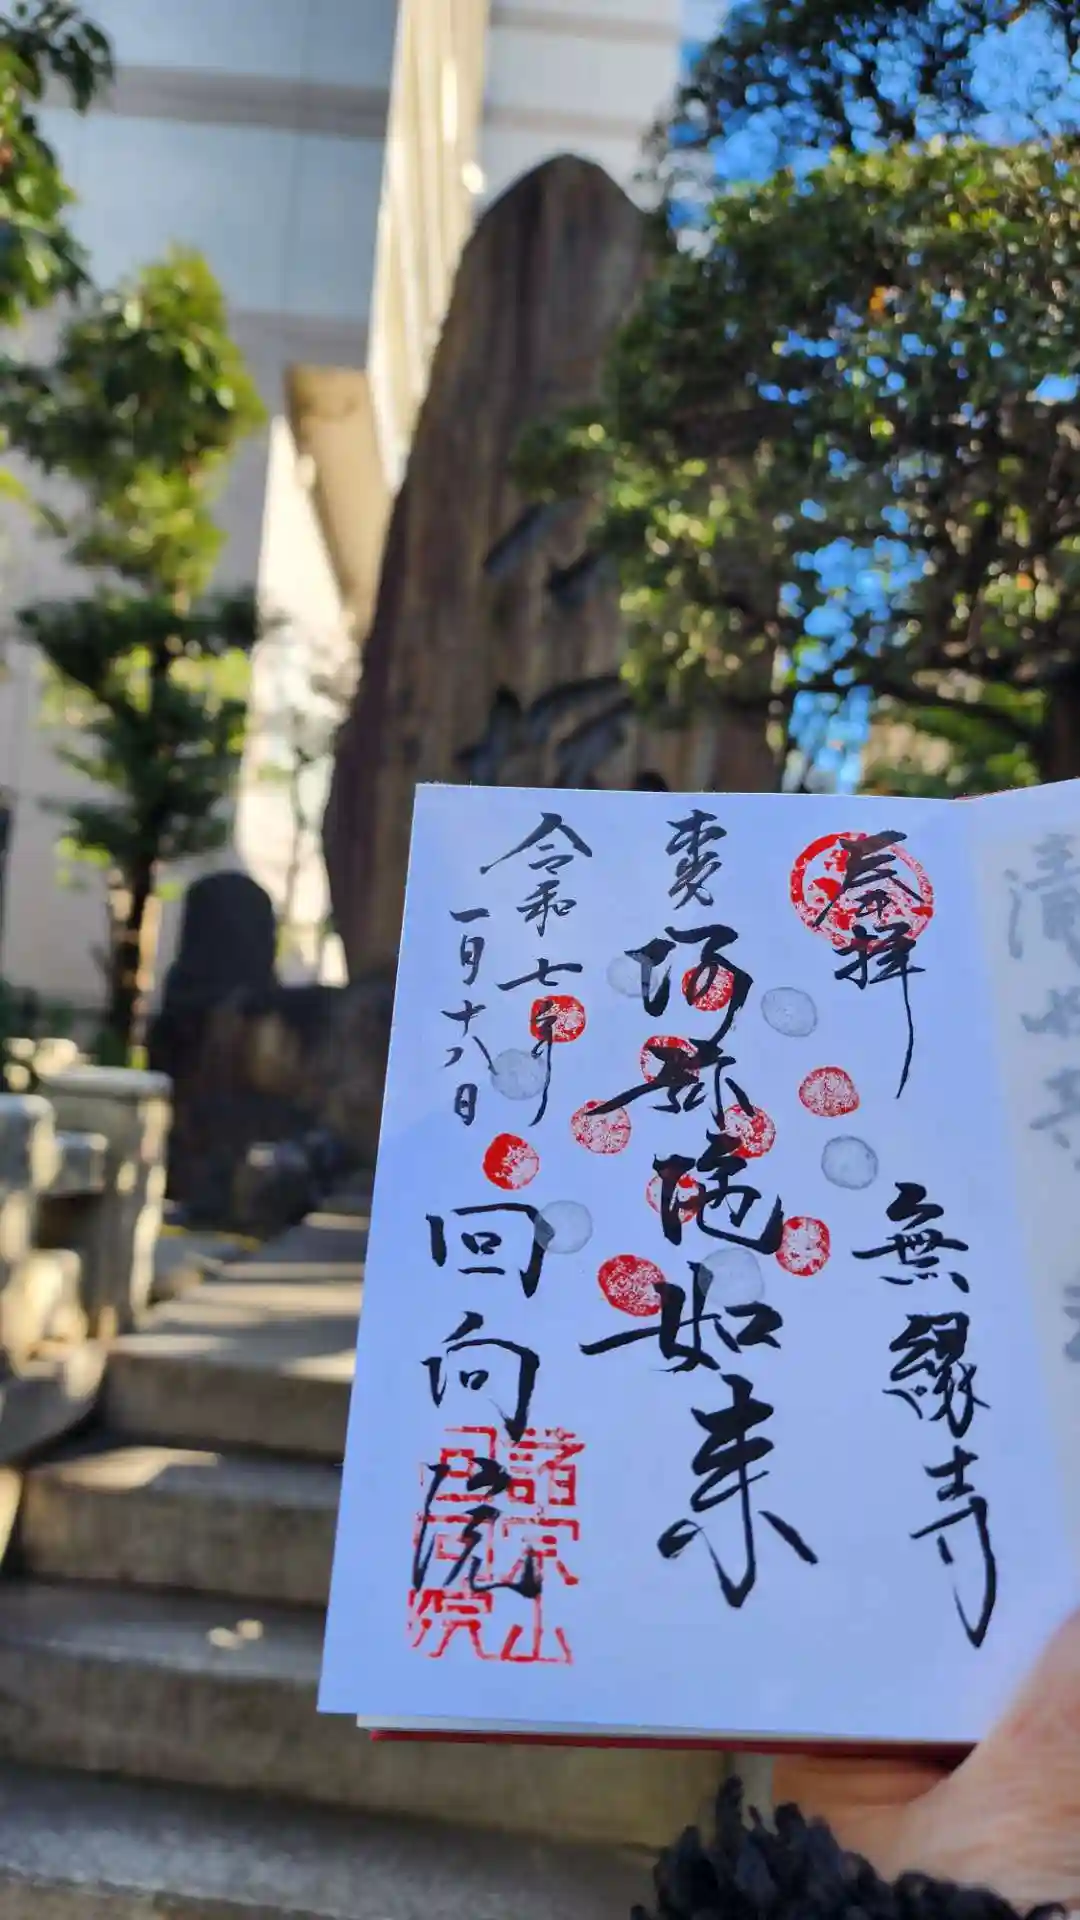 奉拝
無縁寺
阿弥陀如来
令和七年
一月十八日
回向院
諸宗山
回向院
力塚